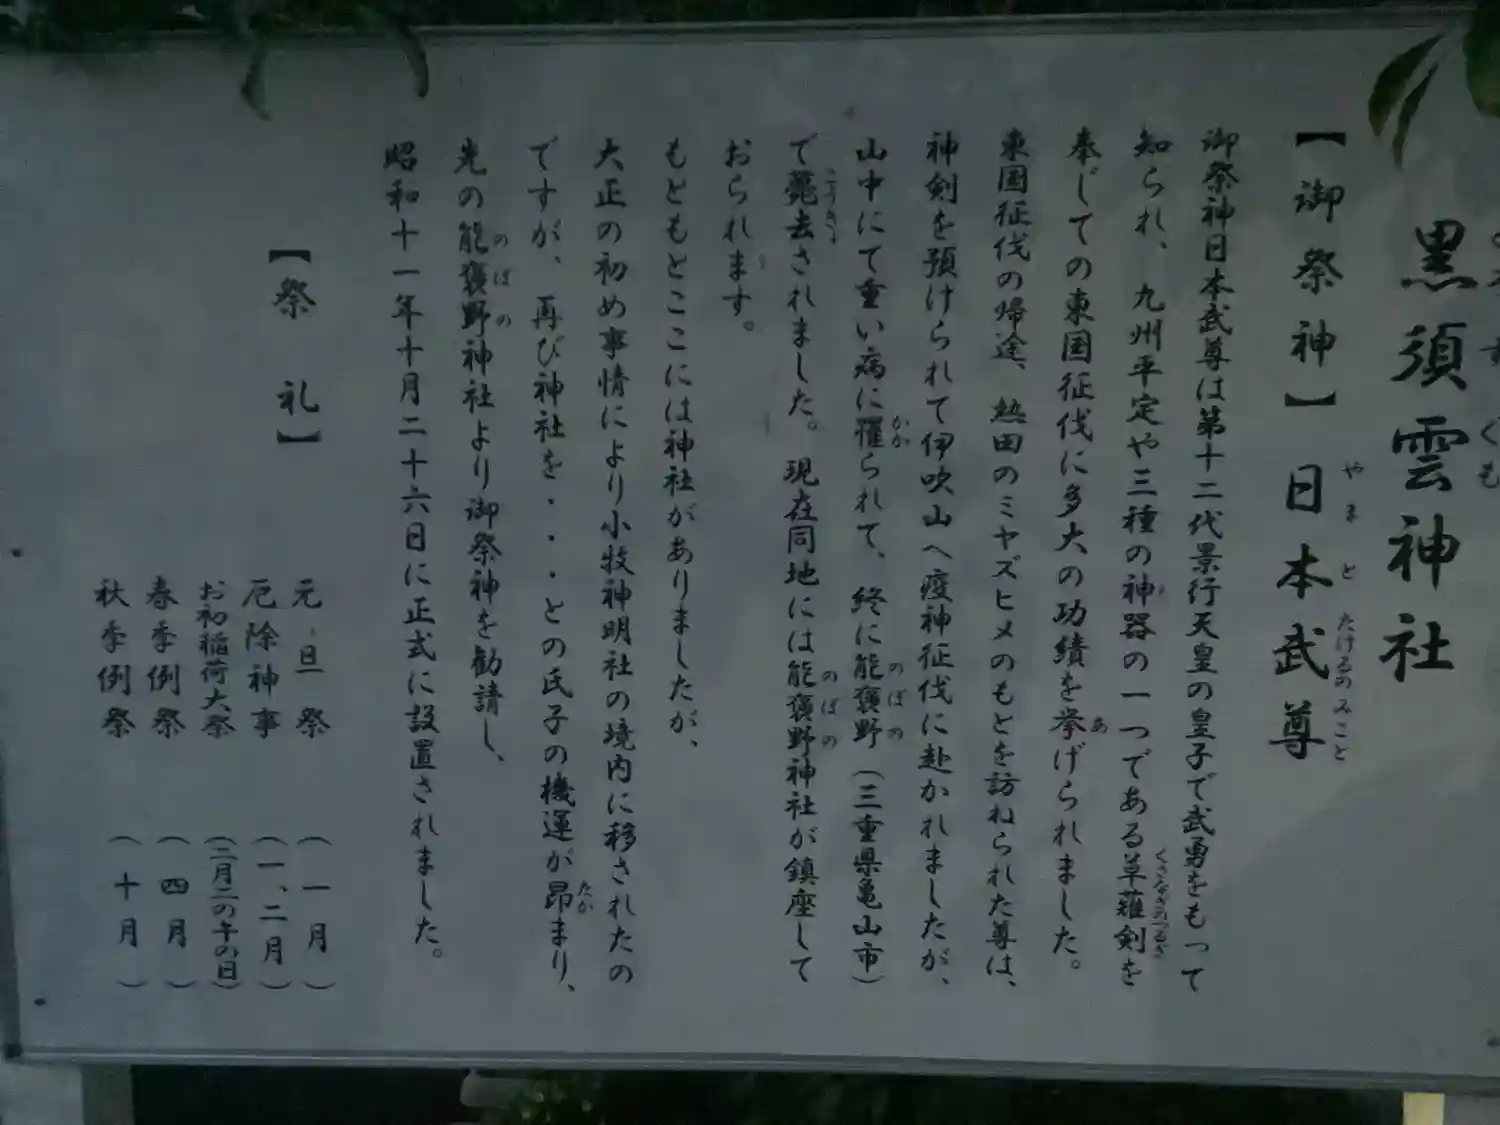 黒須雲神社
【御祭神】日本武尊
やまとたけるのみこと
御祭神日本武尊は第十二代景行天皇の皇子で武勇をもって
知られ、九州平定や三種の神器の一つである草薙剣を
くさなぎのつるぎ
奉じての東国征伐に多大の功績を挙げられました。
あ
東国征伐の帰途、熱田のミヤズヒメのもとを訪ねられた尊は、
神剣を預けられて伊吹山へ疫神征伐に赴かれましたが、
山中にて重い病に罹られて、終に能褒野（三重県亀山市）
かか
のぼの
で薨去されました。現在同地には能褒野神社が鎮座して
こうきょ
のぼの
おられます。
もともとここには神社がありましたが、
大正の初め事情により小牧神明社の境内に移されたの
ですが、再び神社を・・・との氏子の機運が昂まり、
たか
先の能褒野神社より御祭神を勧請し、
のぼの
昭和十一年十月二十六日に正式に設置されました。
【祭礼】
元旦祭（一月）
厄除神事（一、二月）
お初稲荷大祭（二月二の午の日）
春季例祭（四月）
秋季例祭（十月）